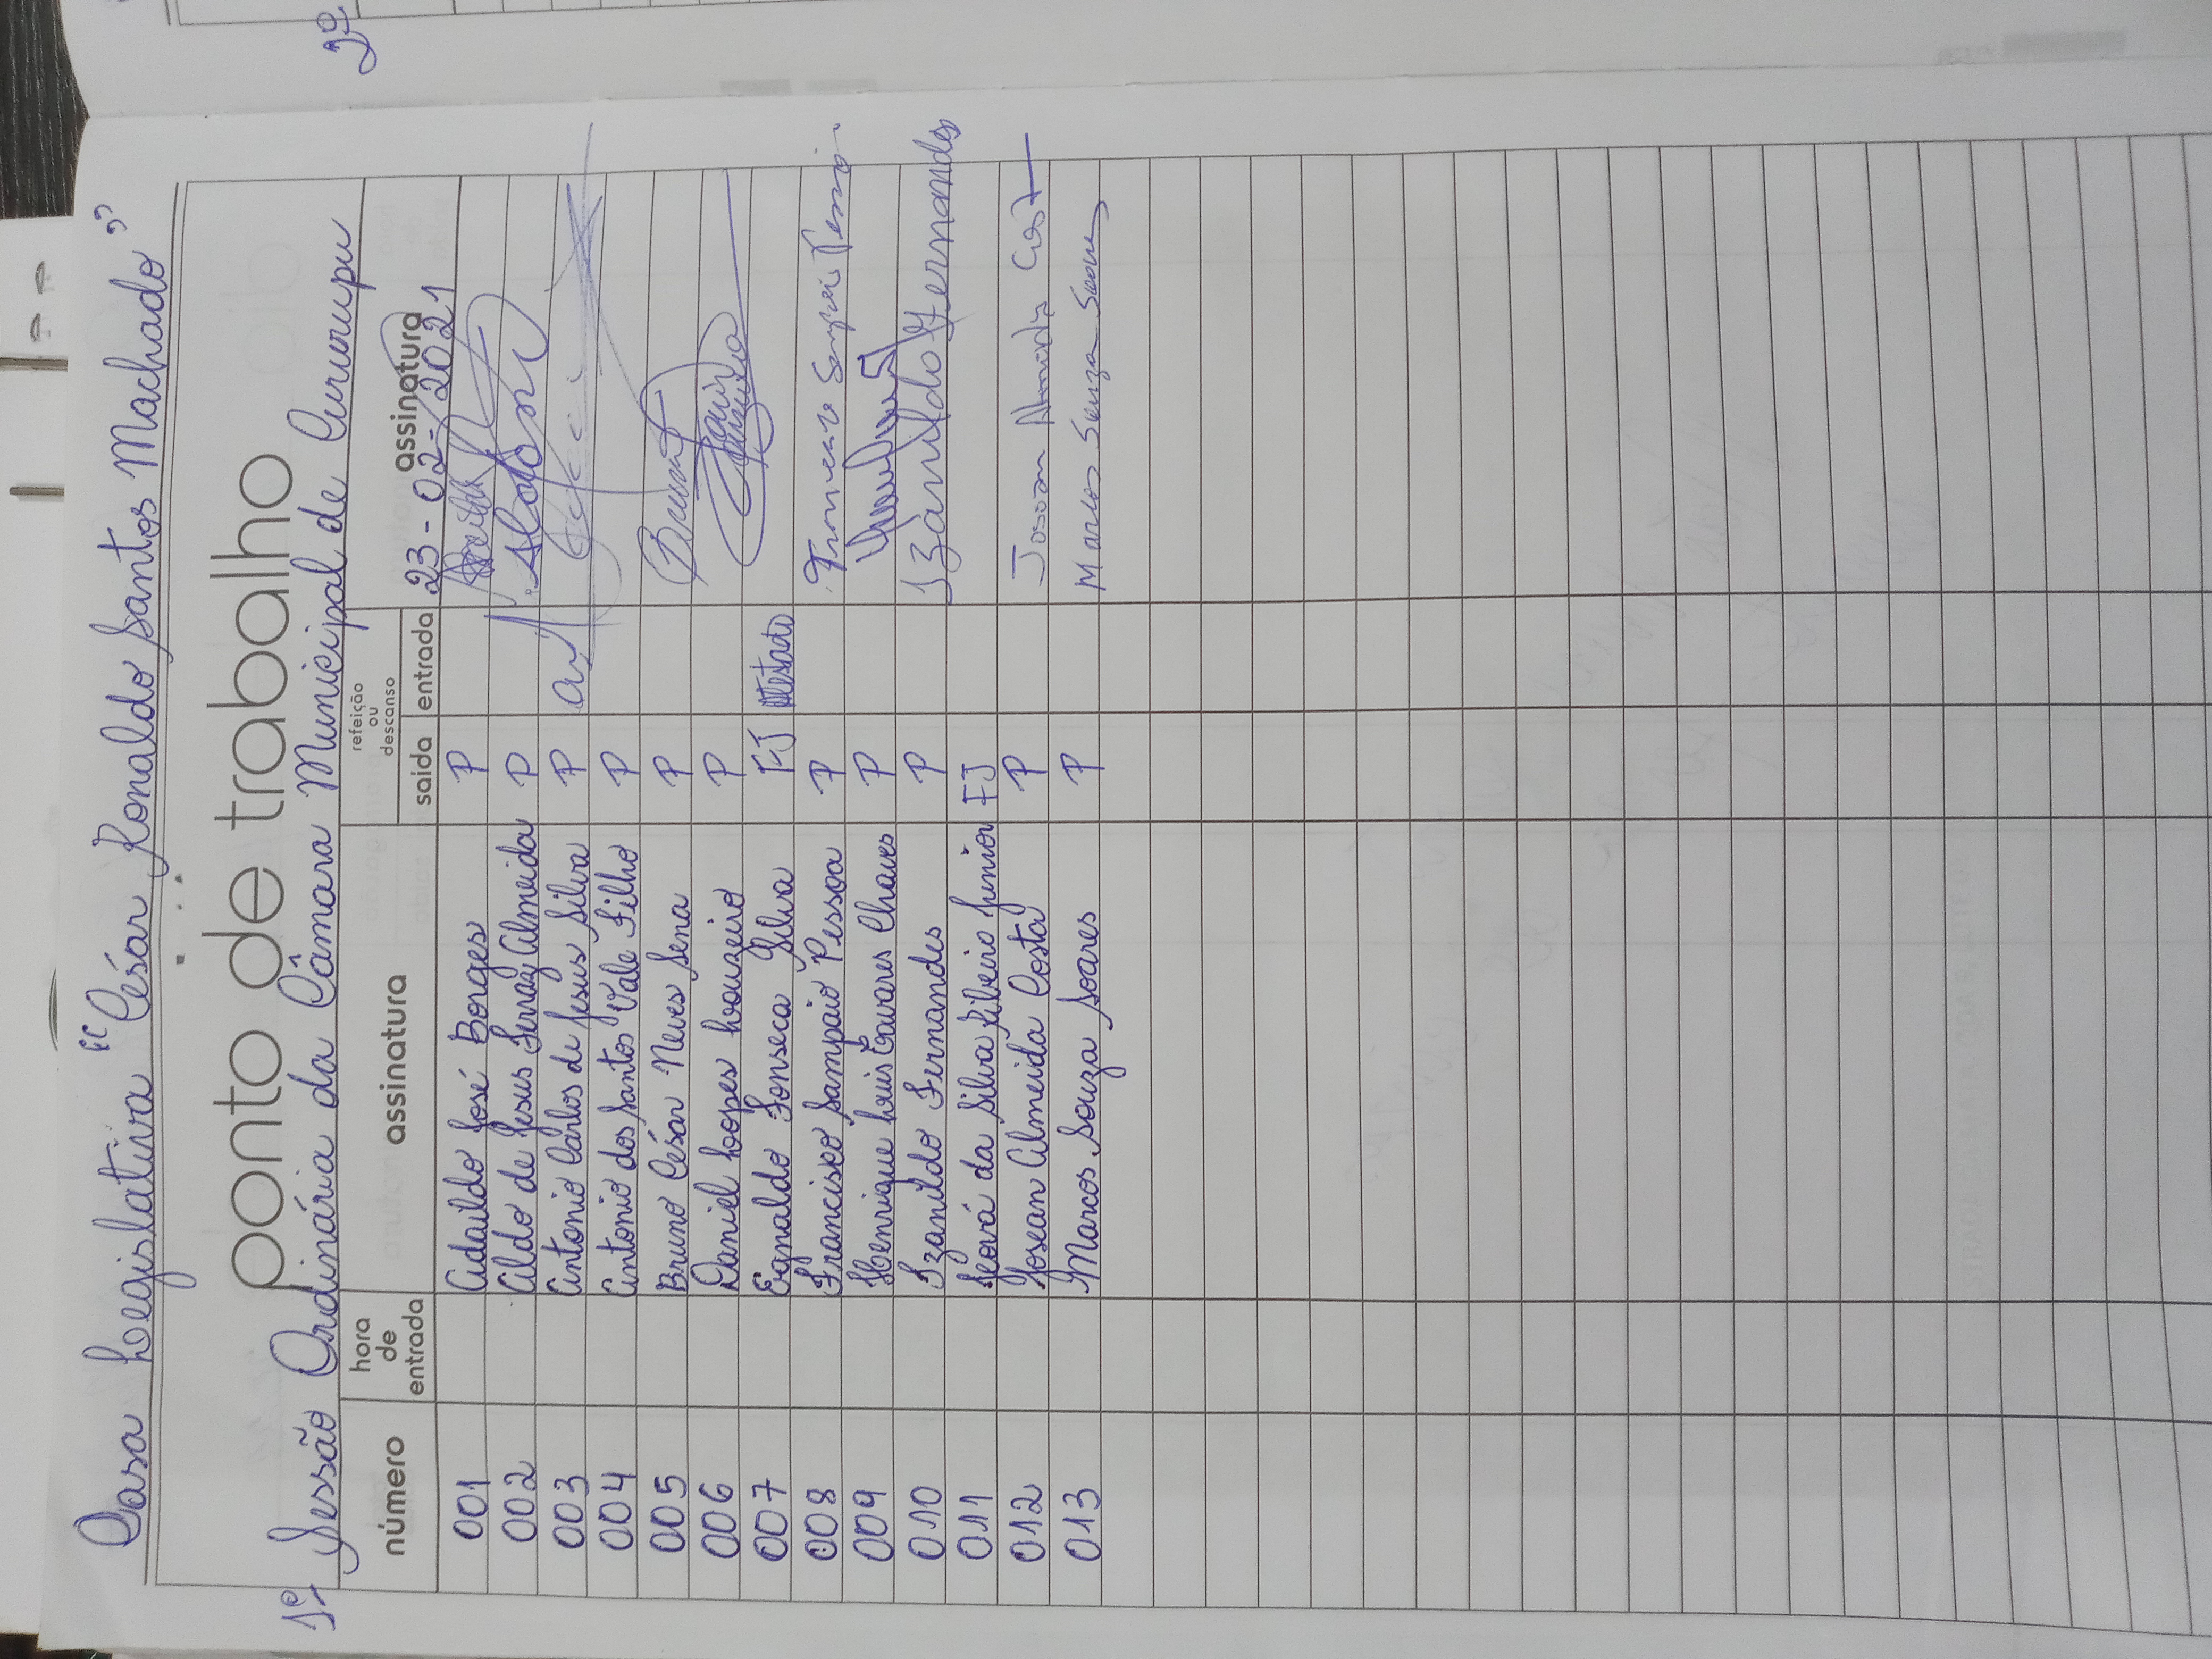 Casa Legislativa "César Ronaldo Santos Machado"
ponto de trabalho
1º Sessão Ordinária da Câmara Municipal de Cururupu
2º
número hora de entrada assinatura refeição ou descanso saída entrada assinatura
23-02-2021
001 Adaildo José Borges P
002 Aldo de Jesus Ferraz Almeida P
003 Antonio Carlos de Jesus Silva P
004 Antonio dos Santos Vale Filho P
005 Bruno César Neves Sena P Bruno
006 Daniel Lopes Louzeiro P
007 Egnaldo Fonseca Silva FJ Atestado
008 Francisco Sampaio Pessoa P Francisco Sampaio Pessoa
009 Henrique Luis Tavares Chaves P
010 Izanildo Fernandes P Izanildo Fernandes
011 Jeová da Silva Ribeiro Junior FJ
012 Josean Almeida Costa P Josean Almeida Costa
013 Marcos Souza Soares P Marcos Souza Soares